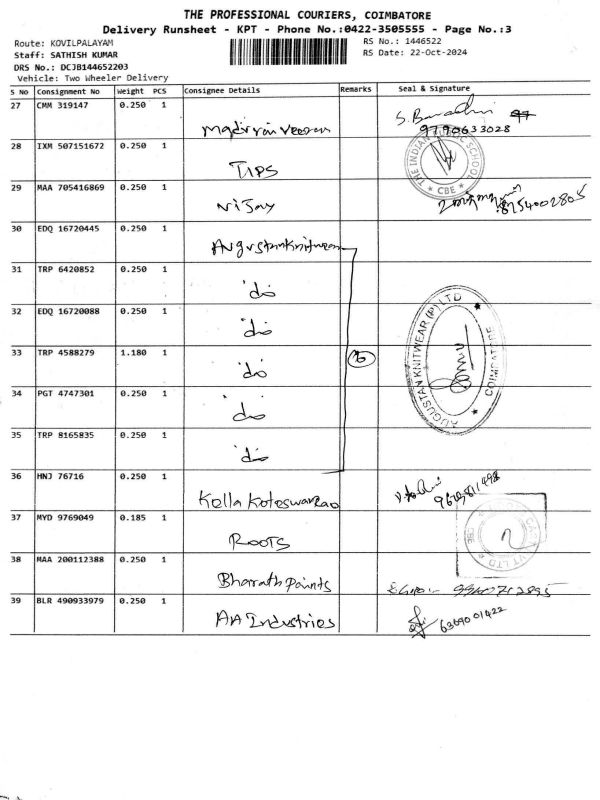 THE PROFESSIONAL COURIERS, COIMBATORE
Delivery Runsheet - KPT - Phone No.:0422-3505555 - Page No.:3
Route: KOVILPALAYAM RS No.: 1446522
Staff: SATHISH KUMAR RS Date: 22-Oct-2024
DRS No.: DCJB144652203
Vehicle: Two Wheeler Delivery
S No Consignment No Weight PCS Consignee Details Remarks Seal & Signature
27 CMM 319147 0.250 1
9790633028
28 IXM 507151672 0.250 1
TIPS
THE INDIAN PUBLIC SCHOOL
* CBE *
29 MAA 705416869 0.250 1
Vijay 8754002805
30 EDQ 16720445 0.250 1
Augustanknitwear
31 TRP 6420852 0.250 1
'do
32 EDQ 16720088 0.250 1
'do
33 TRP 4588279 1.180 1
'do 6
AUGUSTAN KNITWEAR (P) LTD
COIMBATORE
34 PGT 4747301 0.250 1
'do
35 TRP 8165835 0.250 1
'do
36 HNJ 76716 0.250 1
Kella Koteswarrao
37 MYD 9769049 0.185 1
ROOTS
PVT LTD
CBE
38 MAA 200112388 0.250 1
Bharath Paints
39 BLR 490933979 0.250 1
AA Industries 6369001422